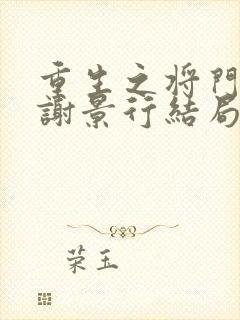 重生之将門
謝景行結局
荣玉